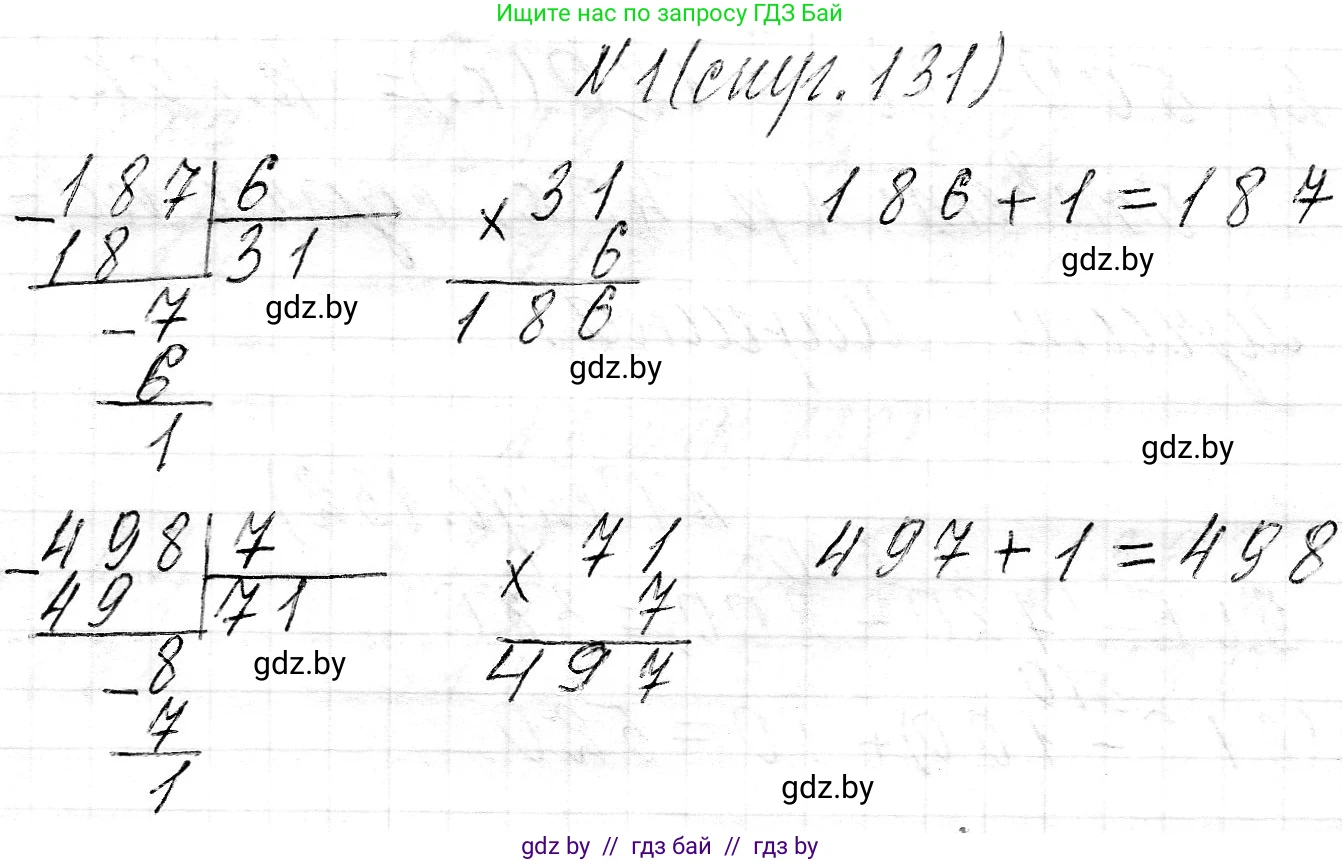 Ищите нас по запросу ГДЗ Бай
№1 (стр. 131)
187 6
- 18 31
gdz.by
- 7
6
1
31
× 6
186
gdz.by
186 + 1 = 187
gdz.by
gdz.by
498 7
- 49 71
gdz.by
- 8
7
1
71
× 7
497
497 + 1 = 498
gdz.by
gdz by // гдз бай // гдз by